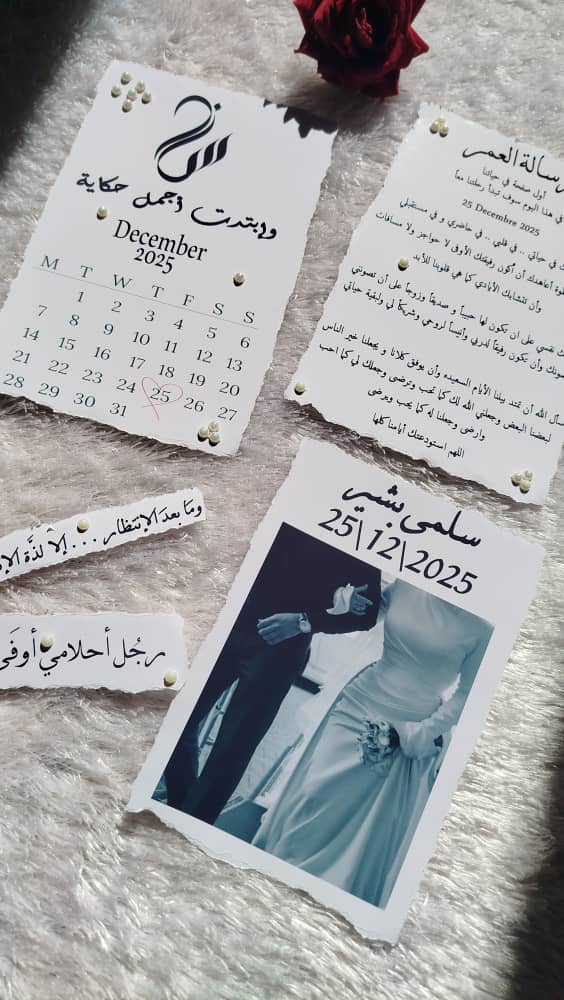 وابتدت أجمل حكاية
December
2025
M T W T F S S
1 2 3 4 5 6
7 8 9 10 11 12 13
14 15 16 17 18 19 20
21 22 23 24 25 26 27
28 29 30 31
رسالة العمر
أول صفحة في حياتنا
في هذا اليوم سوف تبدأ رحلتنا معاً
25 Decembre 2025
في حياتي .. في قلبي .. في حاضري و في مستقبلي
أعاهدك أن أكون رفيقتك الأوفى لا حواجز ولا مسافات
وأن تتشابك الأيادي كما هي قلوبنا للأبد
نفسي على ان يكون لها حبيباً و صديقاً وزوجاً على أن تصونني
وأن يكون رفيقاً لدربي وأنيساً لروحي وشريكاً لي ولبقية حياتي
الله أن تمتد بيننا الأيام السعيده وأن يوفق كلانا و يجعلنا خير الناس
لبعضنا البعض وجعلني الله لك كما تحب وترضى وجعلك لي كما احب
وارضى وجعلنا له كما يحب ويرضى
اللهم استودعتك أيامنا كلها
وما بعد الانتظار ... إلا لذة
رجل أحلامي أوفى
سلمى بشير
25\12\2025